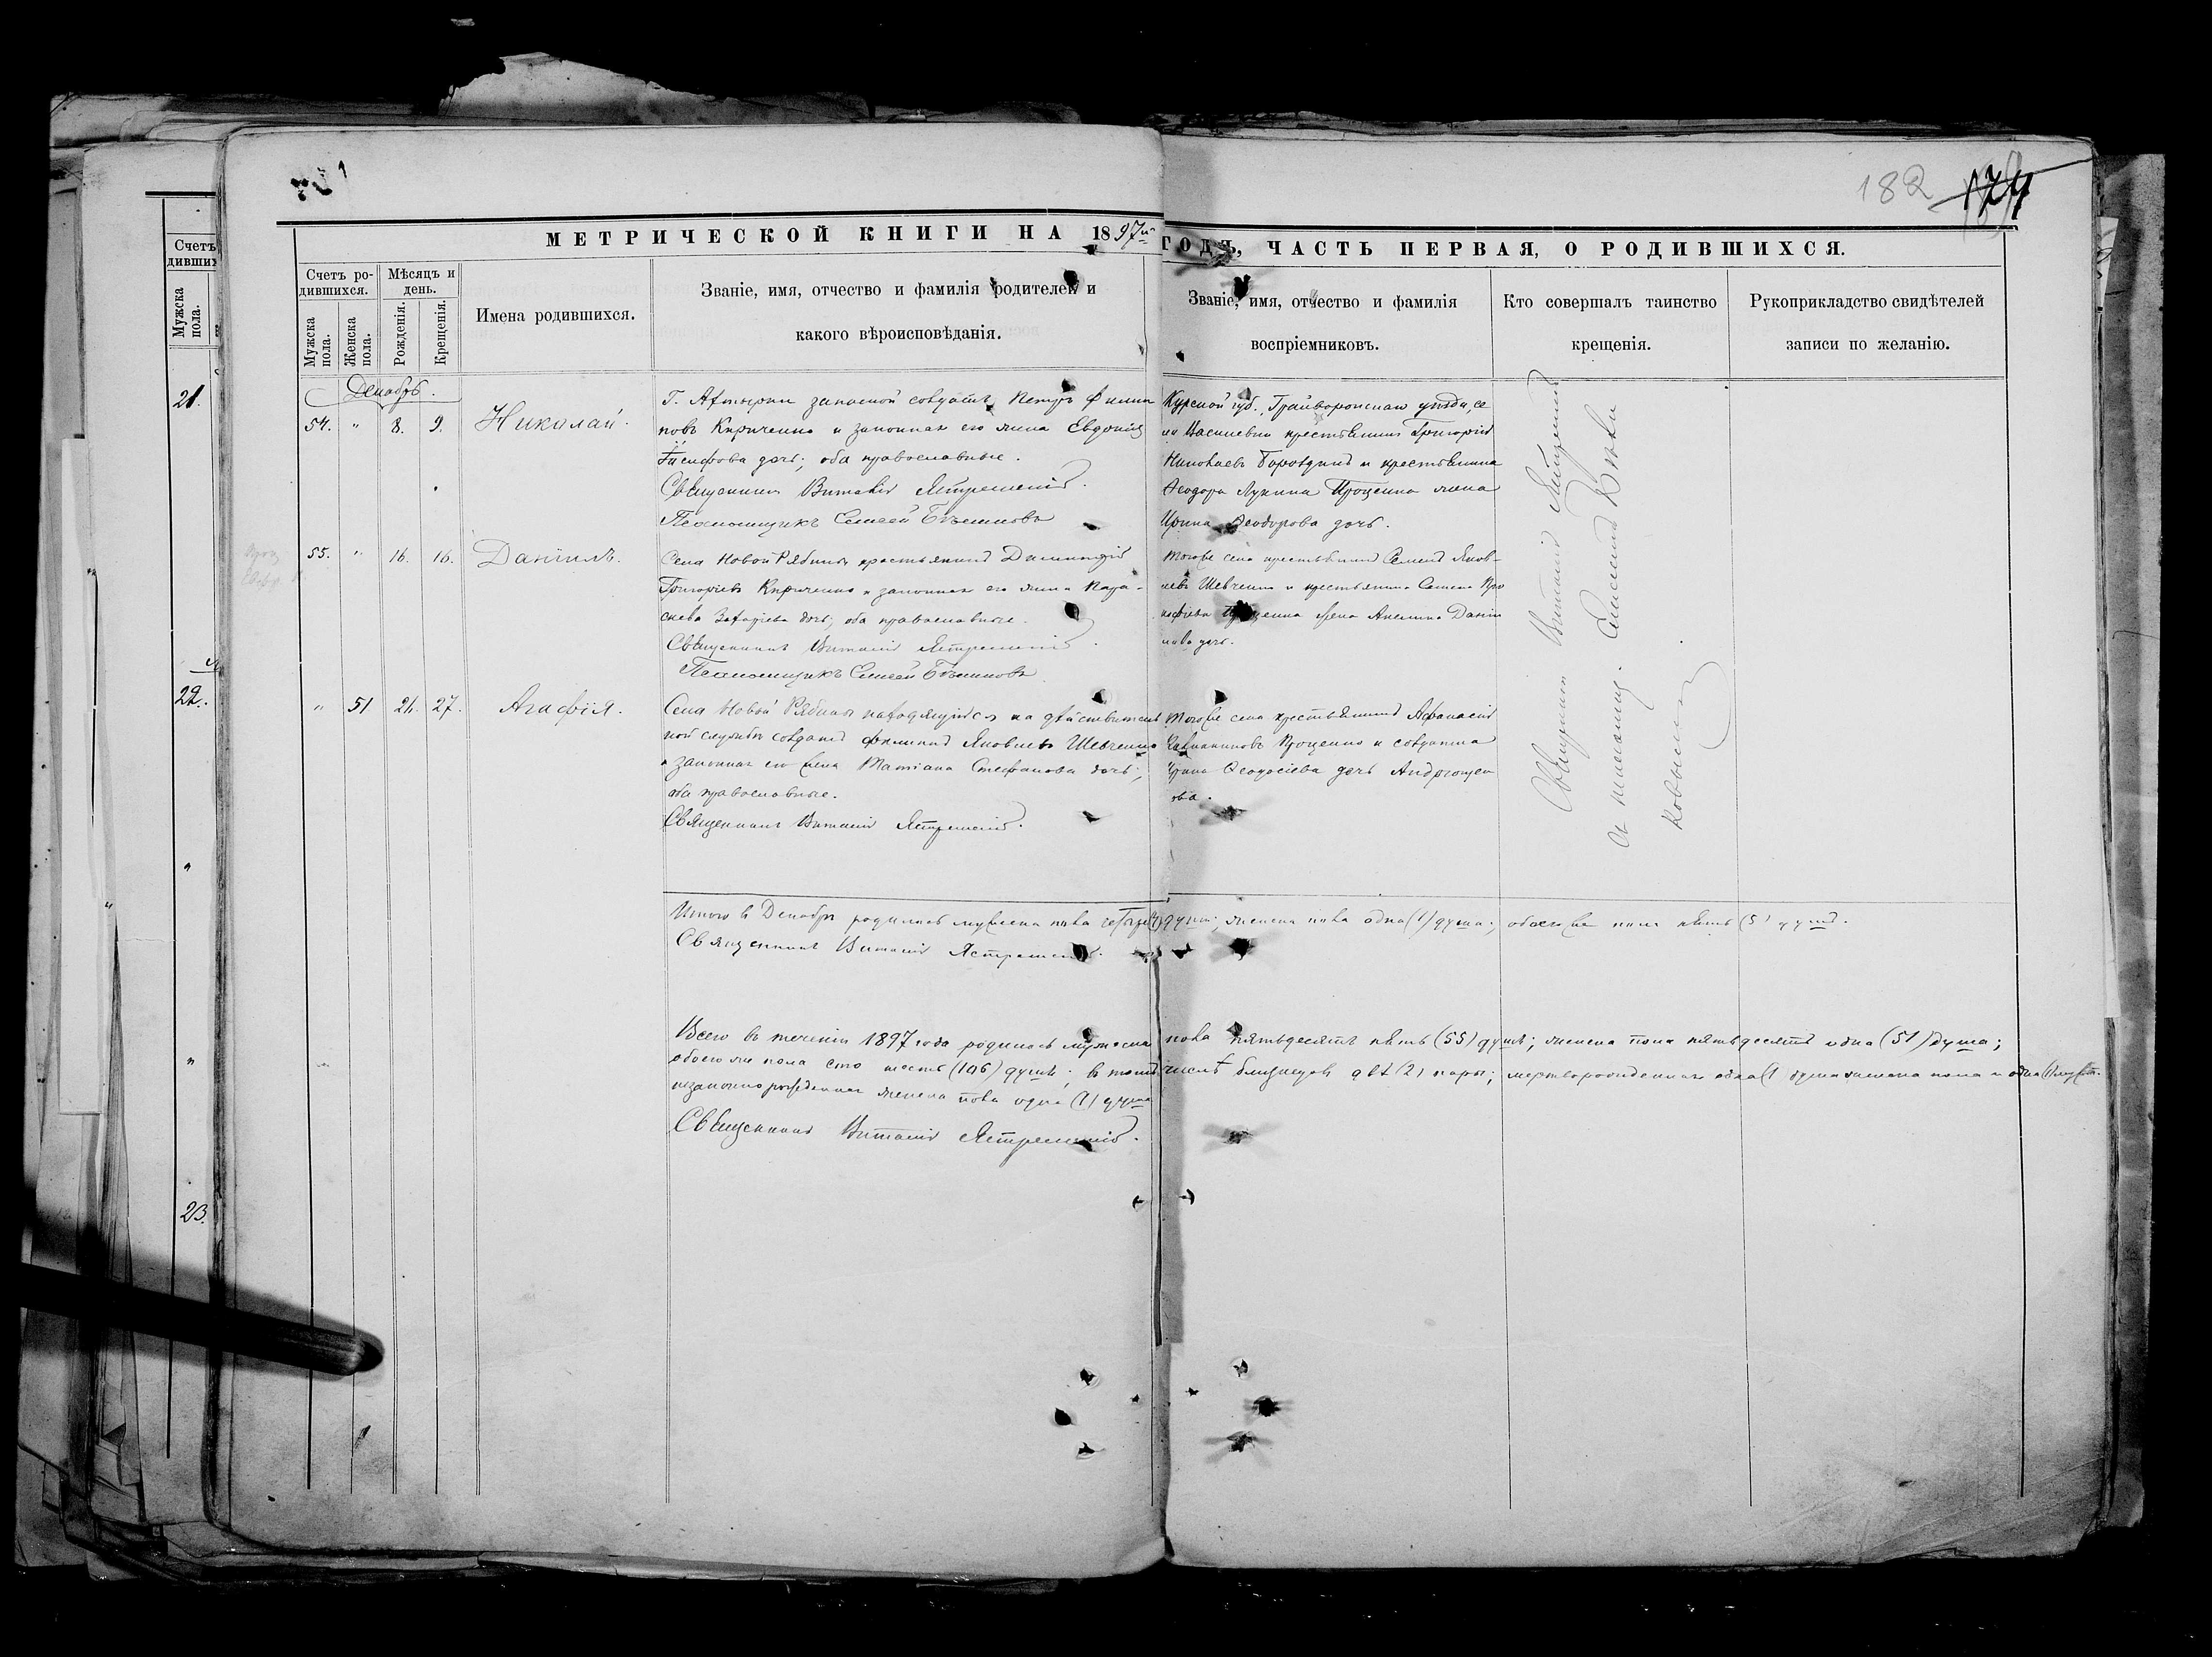 182 174
МЕТРИЧЕСКОЙ КНИГИ НА 1897й ГОДЪ, ЧАСТЬ ПЕРВАЯ, О РОДИВШИХСЯ.
Счетъ ро-
дившихся.
Мужска
пола.
Женска
пола.
Мѣсяцъ и
день.
Рожденія.
Крещенія.
Имена родившихся.
Званіе, имя, отчество и фамилія родителей и
какого вѣроисповѣданія.
Званіе, имя, отчество и фамилія
воспріемниковъ.
Кто совершалъ таинство
крещенія.
Рукоприкладство свидѣтелей
записи по желанію.
Декабрь.
54. " 8. 9. Николай.
Г. Ахтырки запасной солдатъ Петръ Филип
повъ Кириченко и законная его жена Евдокія
Іосифова дочь; оба православные.
Священникъ Виталій
Псаломщикъ Елисей
Курской губ., Грайворонскаго уѣзда, се
ла крестьянинъ Григорій
Николаевъ и крестьянина
Ѳеодора Лукина Проценко жена
Ирина Ѳеодорова дочь.
55. " 16. 16. Даніилъ.
Села Новой Рябины крестьянинъ Димитрій
Григорьевъ Кириченко и законная его жена Пара-
скева Захаріева дочь; оба православные.
Священникъ Виталій
Псаломщикъ Елисей
Того же села крестьянинъ Семенъ Яков-
левъ Шевченко и крестьянина Семена Про
кофіева Проценка жена Акилина Даніи
лова дочь.
" 51 21. 27. Агафія.
Села Новой Рябины находящійся на дѣйствитель
ной службѣ солдатъ Филиппъ Яковлевъ Шевченко
и законная его жена Татіана Стефанова дочь;
оба православные.
Священникъ Виталій
Того же села крестьянинъ Афанасій
Проценко и солдатка
Ирина Ѳеодосіева дочь
ова.
Священникъ Виталій
съ псаломщ. Елисеемъ
Итого въ Декабрѣ родилось мужеска пола четыре (4) душъ; женска пола одна (1) душа; обоего же пола пять (5) душъ.
Священникъ Виталій
Всего въ теченіи 1897 года родилось мужеска пола пятьдесятъ пять (55) душъ; женска пола пятьдесятъ одна (51) душа;
обоего же пола сто шесть (106) душъ; въ томъ числѣ близнецовъ двѣ (2) пары; мертворожденная одна (1) душа женска пола и одна (1) мужск.
незаконно рожденная женска пола одна (1) душа
Священникъ Виталій
Счетъ
дивших
Мужска
пола.
21.
22.
23.